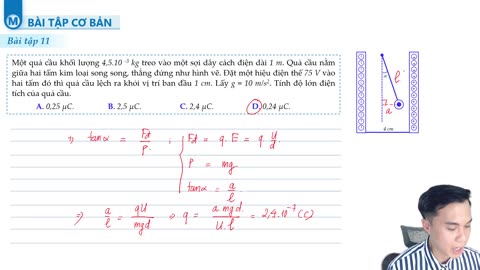 M BÀI TẬP CƠ BẢN
Bài tập 11
Một quả cầu khối lượng 4,5.10⁻³ kg treo vào một sợi dây cách điện dài 1 m. Quả cầu nằm
giữa hai tấm kim loại song song, thẳng đứng như hình vẽ. Đặt một hiệu điện thế 75 V vào
hai tấm đó thì quả cầu lệch ra khỏi vị trí ban đầu 1 cm. Lấy g = 10 m/s². Tính độ lớn điện
tích của quả cầu.
A. 0,25 μC. B. 2,5 μC. C. 2,4 μC. D. 0,24 μC.
l
a
4 cm
=> tanα = Fđ/P ; Fđ = q.E = q U/d
P = mg
tanα = a/l
=> a/l = qU/mgd => q = a mgd/U.l = 2,4.10⁻⁷ (C)